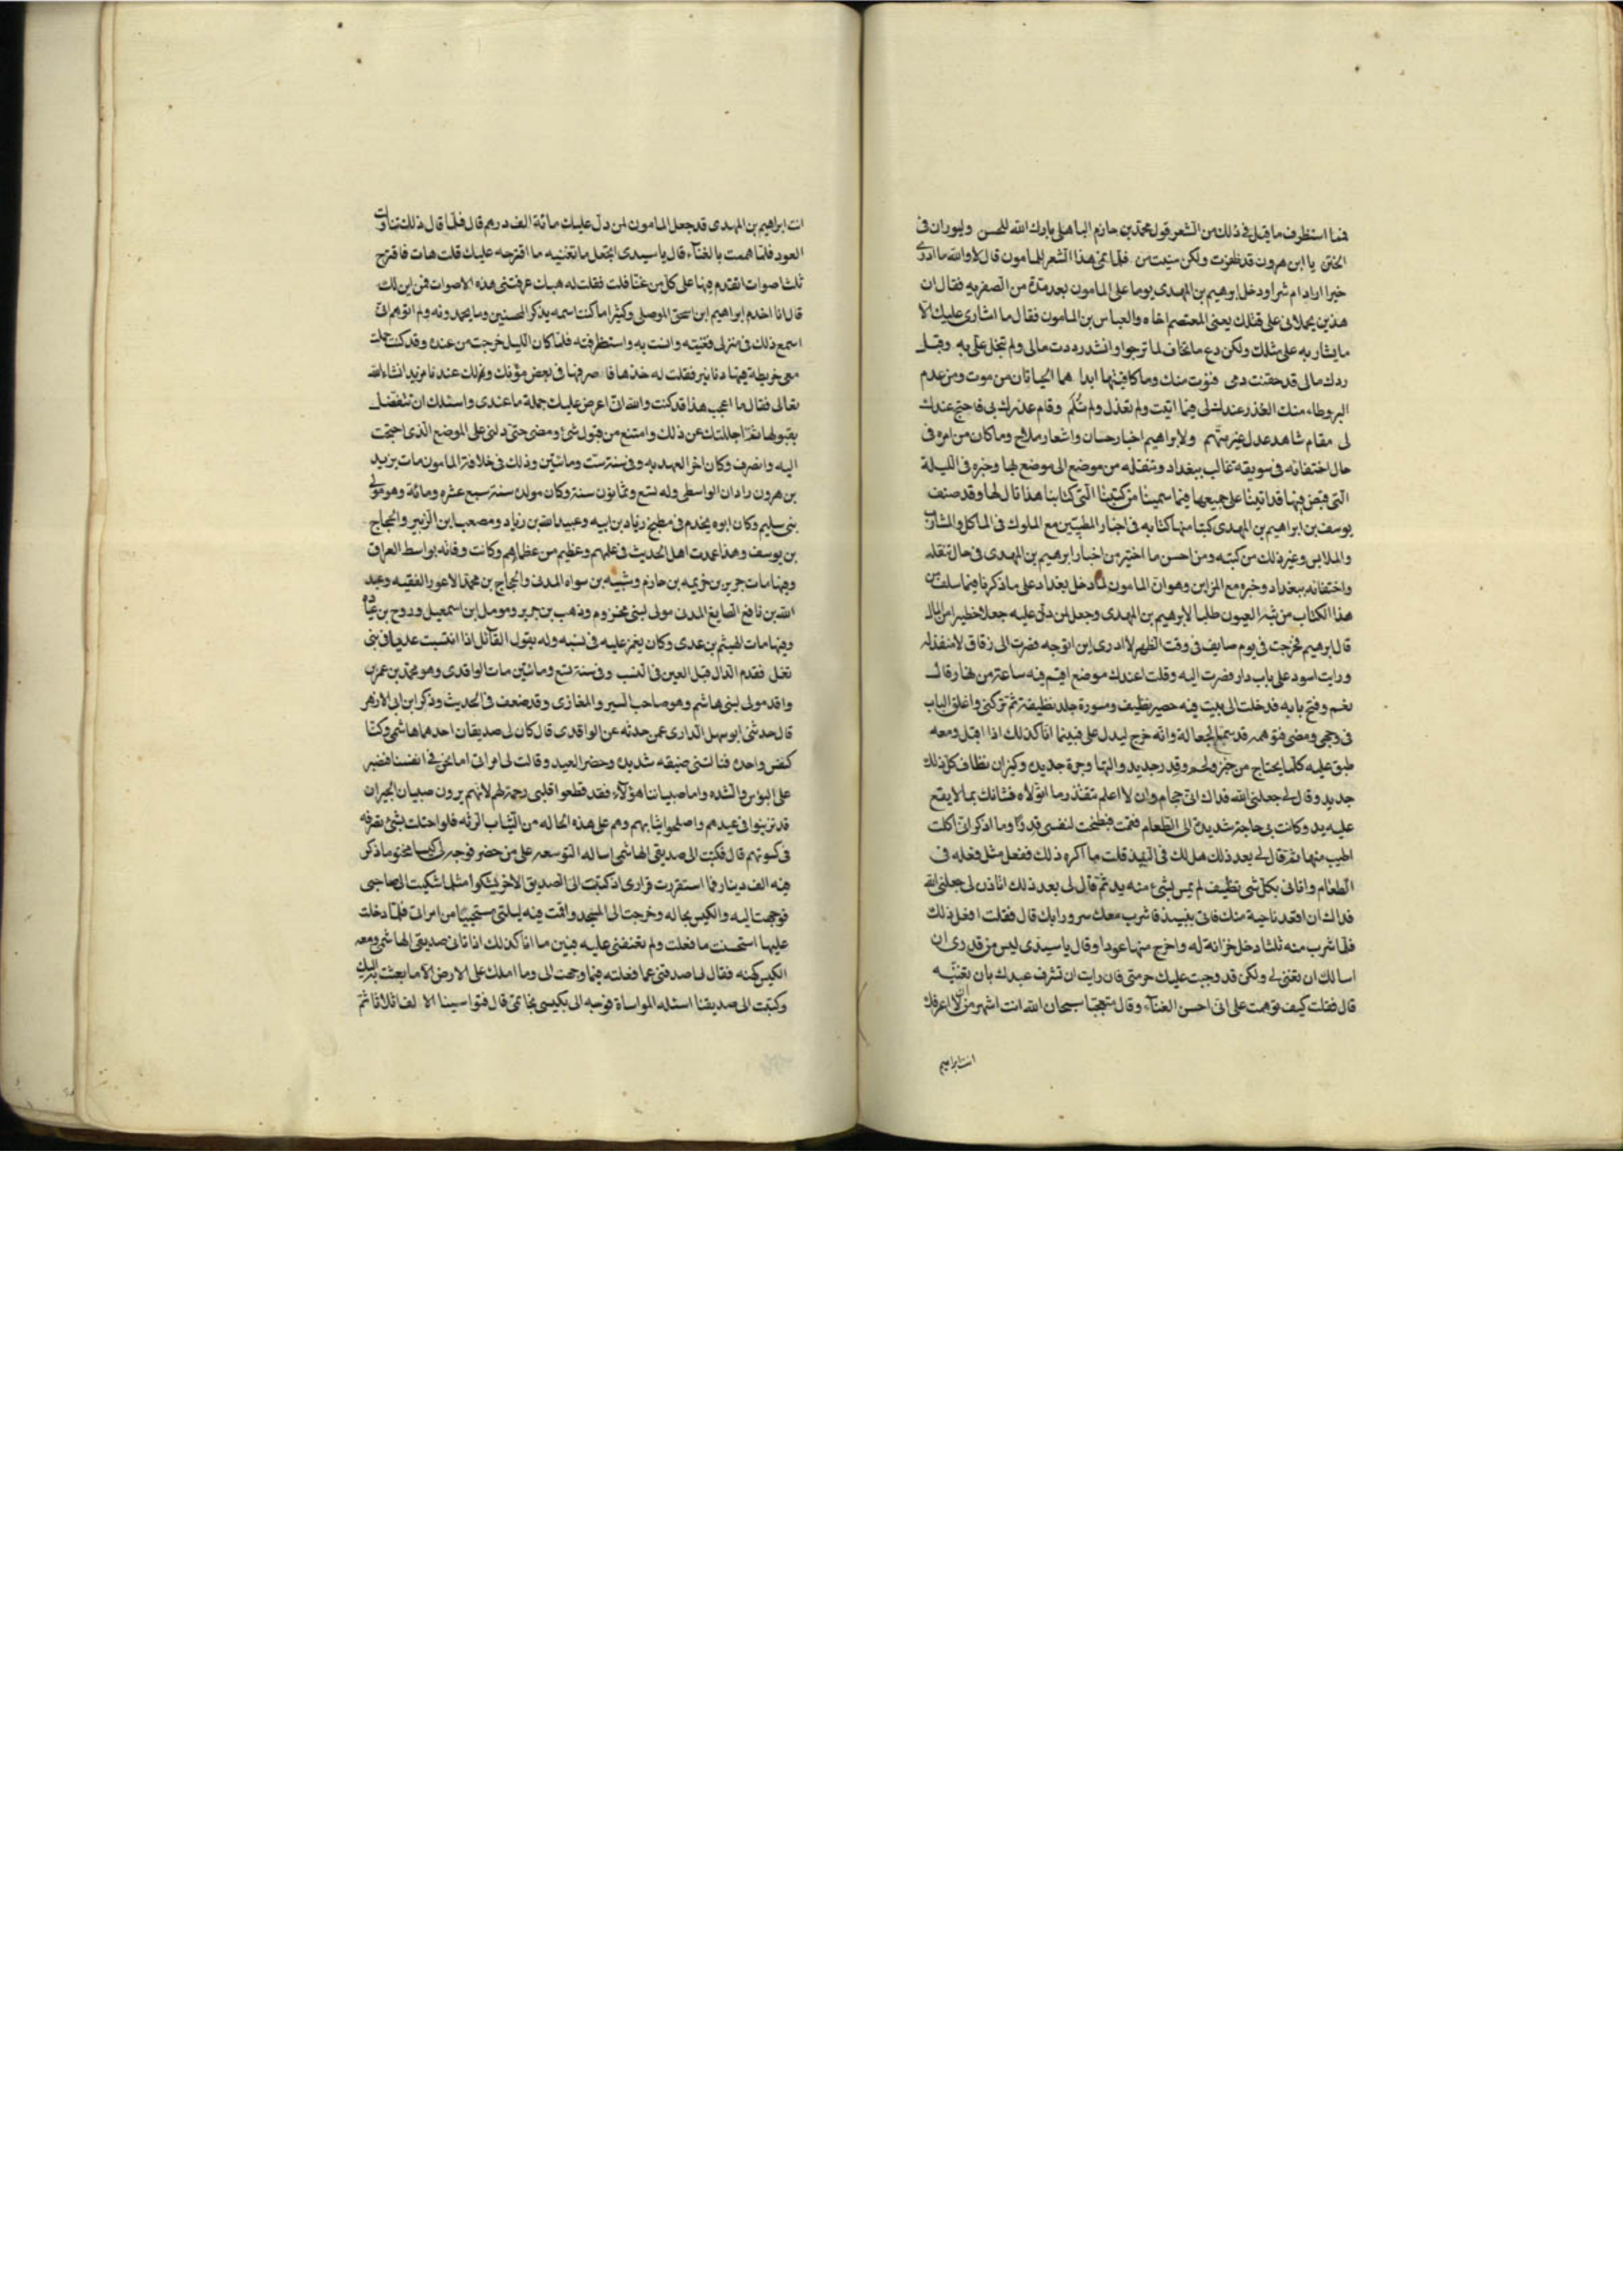 فمما استظرف ما قيل في ذلك من الشعر قول محمد بن حازم الباهلي بارك الله للحسن ولبوران في
الختن يا ابن هرون قد ظفرت ولكن ببنت من فلما نمى هذا الشعر المامون قال لا والله ما ادرى
خيرا اراد ام شرا ودخل ابرهيم بن المهدى يوما على المامون بعد مدة من الصفر به فقال ان
هذين يحملانى على قتلك يعنى المعتصم اخاه والعباس بن المامون فقال ما اشارى عليك الا
ما يشار به على مثلك ولكن دع ما تخاف لما ترجوا وانشد رددت مالى ولم تبخل على به وقبل
ردك مالى قد حقنت دمى فبوت منك وما كافيتها ابدا هما الحياتان من موت ومن عدم
البر وطاء منك العذر عندك لى فيما اتيت ولم تعذل ولم تلم وقام عذرك بى فاحتج عندك
لى مقام شاهد عدل غير متهم ولابراهيم اخبار حسان واشعار ملاح وما كان من امره في
حال اختفائه في سويقه غالب ببغداد وتنقله من موضع الى موضع بها وخبره في الليلة
التى قبض فيها قد اتينا على جميعها فيما سمينا من كتبنا التى كتابنا هذا تال لها وقد صنف
يوسف بن ابراهيم بن المهدى كتبا منها كتابه في اخبار المطببين مع الملوك في الماكل والمشارب
والملابس وغير ذلك من كتبه ومن احسن ما اختير من اخبار ابرهيم بن المهدى في حال تنقله
واختفائه ببغداد وخبره مع المزين وهو ان المامون لما دخل بغداد على ما ذكرنا فيما سلف من
هذا الكتاب من بث العيون طلبا لابرهيم بن المهدى وجعل لمن دل عليه جعلا خطيرا من المال
قال ابرهيم فخرجت في يوم صايف في وقت الظهر لا ادرى اين اتوجه فصرت الى زقاق لا منفذ له
ورايت اسود على باب دار فصرت اليه وقلت اعندك موضع اقيم فيه ساعة من نهار قال
نعم وفتح بابه فدخلت الى بيت فيه حصير نظيف ومسورة جلد نظيفة ثم تركنى واغلق الباب
في وجهى ومضى فتوهمه قد سمع الجعالة وانه خرج ليدل على فبينما انا كذلك اذ اقبل ومعه
طبق عليه كلما يحتاج من خبز ولحم وقدر جديد والتها وجرة جديده وكيزان نظاف كل ذلك
جديد وقال لى جعلنى الله فداك انى حجام وان لا اعلم تتقذر ما اتولاه فشانك بما لا يقع
عليه يد وكانت بى حاجة شديدة الى الطعام فقمت فطبخت لنفسى قدرا وما اذكر انى اكلت
اطيب منها ثم قال لى بعد ذلك هل لك في النبيذ قلت ما اكره ذلك ففعل مثل فعله في
الطعام واتانى بكل شى نظيف لم يمس بشئ منه يد ثم قال لى بعد ذلك اتاذن لى جعلنى الله
فداك ان اقعد ناحية منك فاتى بنبيذ فاشرب معك سرورا بك قال فقلت افعل ذلك
فلما شرب منه ثلثا دخل خزانة له واخرج منها عودا وقال يا سيدى ليس من قدرى ان
اسالك ان تغنى لى ولكن قد وجبت عليك حرمتى فان رايت ان تشرف عبدك بان تغنيه
قال فقلت كيف توهمت على انى احسن الغناء وقال متعجبا سبحان الله انت اشهر من ان لا اعرفك
انت ابراهيم
انت ابراهيم بن المهدى قد جعل المامون لمن دل عليك مائة الف درهم قال فلما قال ذلك تناولت
العود فلما هممت بالغناء قال يا سيدى اتجعل ما تغنيه ما اقترحه عليك قلت هات فاقترح
ثلثا اصوات اتقدم فيها على كل من غنا قلت فقلت له هبك عرفتنى هذه الاصوات فمن اين لك
قال انا اخدم ابراهيم ابن اسحق الموصلى وكثيرا ما كنت اسمعه يذكر المحسنين وما يجيدونه ولم اتوهم انى
اسمع ذلك في منزلى فغنيته وانست به واستظرفته فلما كان الليل خرجت من عنده وقد كنت حملت
معى خريطة فيها دنانير فقلت له خذها فاصرفها في بعض مؤنك ولك عندنا مزيد انشاء الله
تعالى فقال ما اعجب هذا قد كنت والله انى اعرض عليك جملة ما عندى واسئلك ان تتفضل
بقبولها ثم اجللتك عن ذلك وامتنع من قبول شئ ومضى حتى دلنى على الموضع الذى احتجت
اليه وانصرف وكان اخر العهد به وفي سنة ست ومائتين وذلك في خلافة المامون مات يزيد
بن هرون بن زادان الواسطى وله تسع وثمانون سنة وكان مولده سنة سبع عشره ومائة وهو مولى
بنى سليم وكان ابوه يخدم في مطبخ زياد بن ابيه وعبيد الله بن زياد ومصعب ابن الزبير والحجاج
بن يوسف وهذا عدت اهل الحديث في علمهم وعظيم من عظمائهم وكانت وفاته بواسط العراق
وفيها مات جرير بن خزيمه بن حازم وشبيه بن سواه المدنى والحجاج بن محمد الاعور الفقيه وعبد
الله بن نافع الصايغ المدنى مولى لبنى مخزوم ووهب بن جرير ومومل ابن اسمعيل وروح بن عبادة
وفيها مات الهيثم بن عدى وكان يغمز عليه في نسبه وله يقول القائل اذا انتسبت عديا في بنى
ثعل فقدم الدال قبل العين في النسب وفي سنة تسع ومائتين مات الواقدى وهو محمد بن عمر بن
واقد مولى لبنى هاشم وهو صاحب السير والمغازى وقد ضعف في الحديث وذكر ابن ابى الازهر
قال حدثنى ابو سهل الدارى عمن حدثه عن الواقدى قال كان لى صديقان احدهما هاشمى وكنا
كنفس واحده فنالتنى ضيقه شديده وحضر العيد وقالت لى امراتى اما نحن في انفسنا فنصبر
على البؤس والشده واما صبياننا هؤلاء فقد قطعوا قلبى رحمة لهم لانهم يرون صبيان الجيران
قد تزينوا في عيدهم واصلحوا ثيابهم وهم على هذه الحاله من الثياب الرثه فلو احتلت بشئ نصرفه
في كسوتهم قال فكتبت الى صديقى الهاشمى اساله التوسعه على من حضر فوجه الى كيسا مختوما ذكر
فيه الف دينار فما استقررت قرارى اذ كتبت الى الصديق الاخر يشكوا مثل ما شكيت الى صاحبى
فوجهت اليه والكيس بحاله وخرجت الى المسجد واقمت فيه ليلتى مستحييا من امراتى فلما دخلت
عليها استحسنت ما فعلت ولم تعنفنى عليه فبين ما انا كذلك اذ اتانى صديقى الهاشمى ومعه
الكيس كهيئته فقال لى اصدقنى عما فعلته فيما وجهت الى وما املك على الارض الا ما بعثت به اليك
وكتبت الى صديقنا اسئله المواساة فوجه الى بكيسى بخاتمى قال فتواسينا الالف اثلاثا ثم